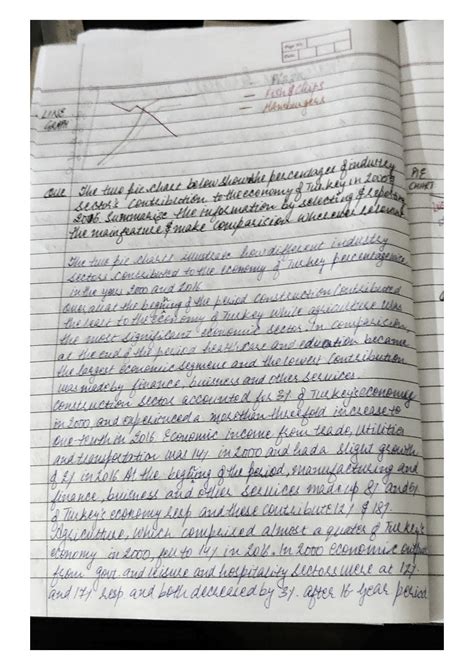 Page No.
Date
Pizza
- Fish & Chips
- Hamburgers
LINE
GRAPH
PIE
CHART
Que The two pie chare below show the percentages of industry
sector's contribution to the economy of Turkey in 2000 &
2016. Summarize the information by selecting & reporting
the main feature & make comparision where relevant
The two pie charts illustrate how different industry
sectors contributed to the economy of Turkey percentage wise
in the years 2000 and 2016.
Overall at the begining of the period construction contributed
the least to the economy of Turkey while agriculture was
the most significant economic sector. In comparision,
at the end of the period healthcare and education became
the largest economic segment and the lowest contribution
was made by finance, buisness and other services.
construction sector accounted for 3% of Turkey's economy
in 2000 and experienced a more than threefold increase to
one-tenth in 2016. Economic income from trade, utilities
and transportation was 14% in 2000 and had a slight growth
of 2% in 2016. At the begiing of the period, manufacturing and
finance, business and other services made up 8% and 6%
of Turkey's economy resp and these contribute 12% & 18%.
Agriculture, which comprised almost a quater of Turkey's
economy in 2000, fell to 14% in 2016. In 2000 economic
from govt. and leisure and hospitality sectors were at 12%
and 17% resp and both decreased by 3%. after 16 year period